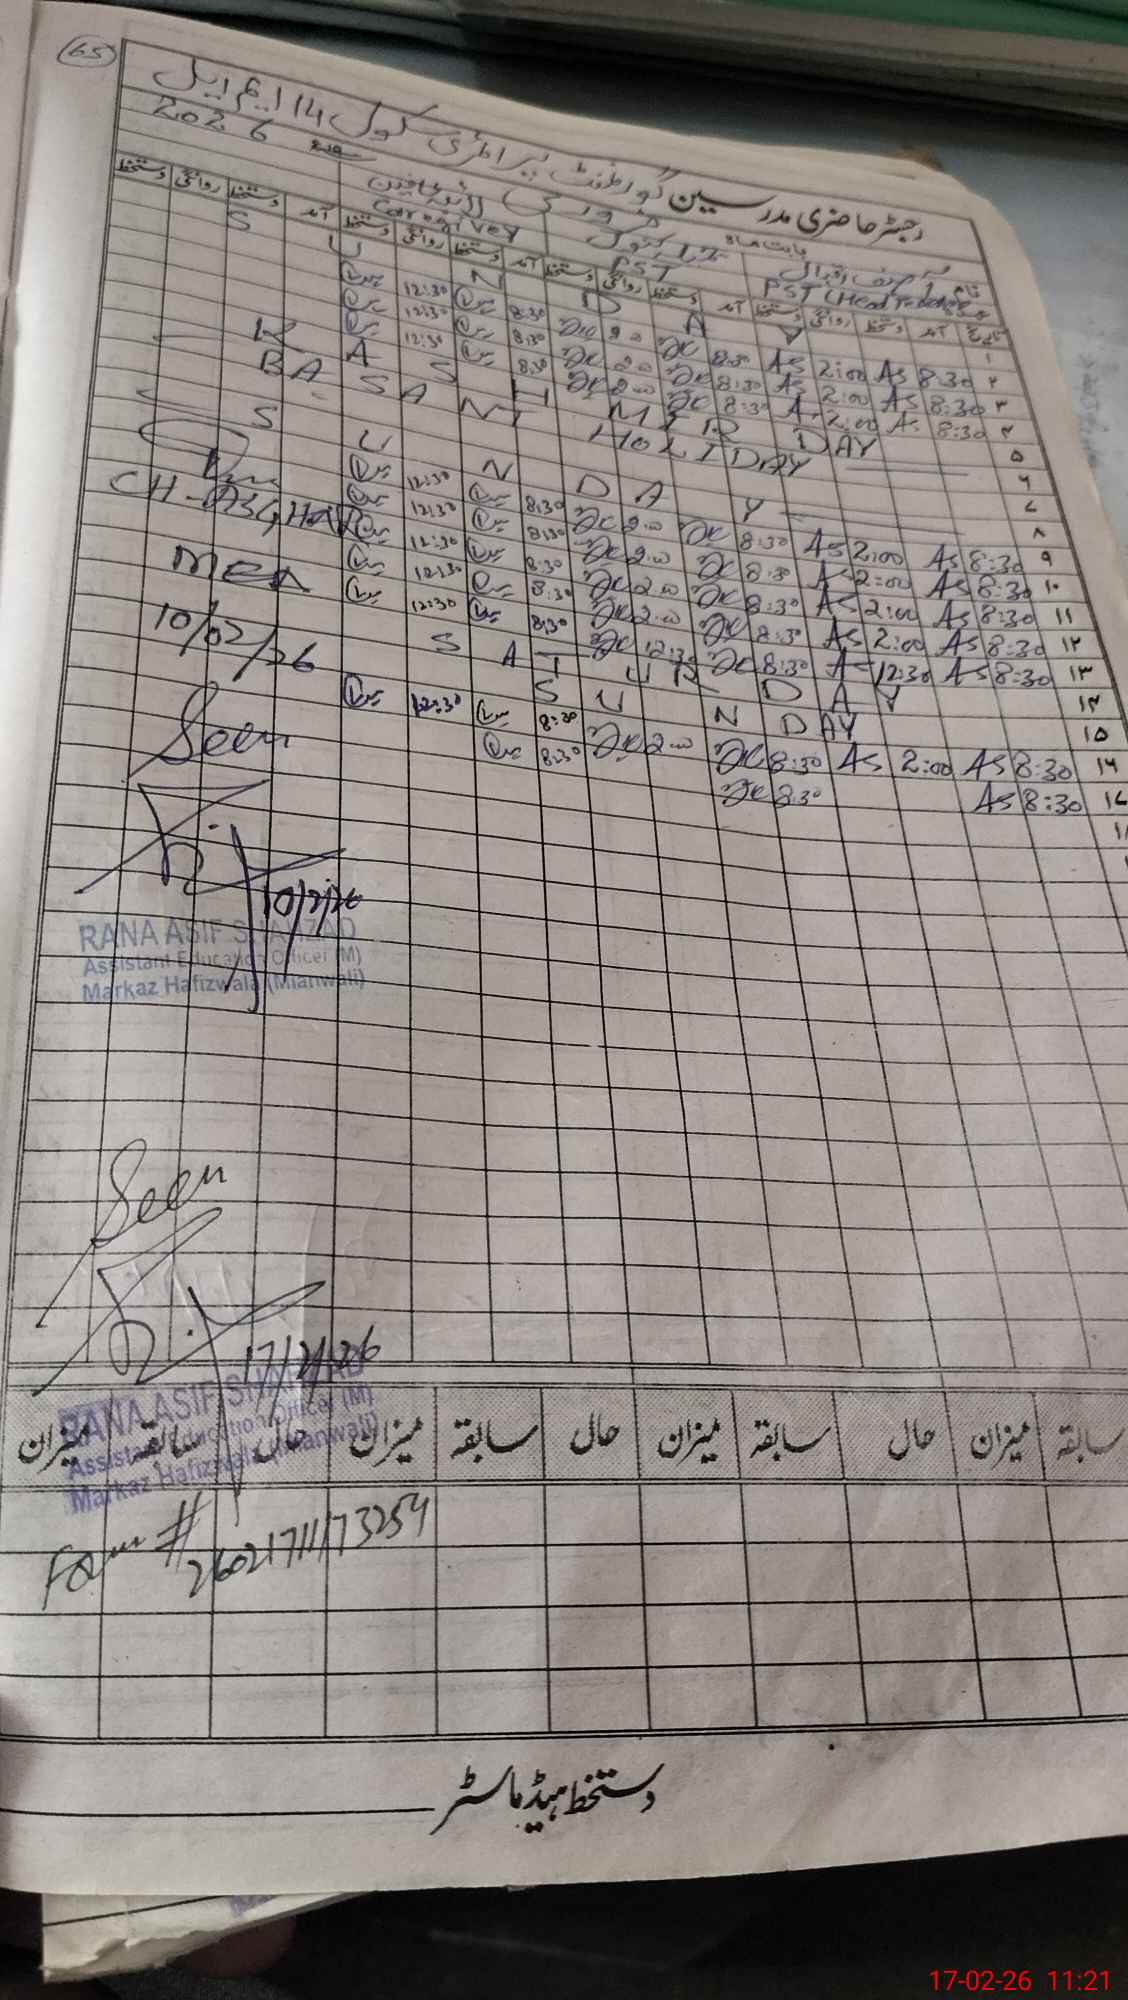 65
رجسٹر حاضری مدرسین گورنمنٹ پرائمری سکول 14 ایم ایل
بابت ماہ فروری 2026
نام آصف اقبال
PST (Head Teacher)
PST
Caregiver
تاریخ آمد دستخط روانگی دستخط آمد دستخط روانگی دستخط آمد دستخط روانگی دستخط آمد دستخط روانگی دستخط
۱ S U N D A Y
۲ 8:30 As 2:00 As 8:30 2:00 8:30 12:30
۳ 8:30 As 2:00 As 8:30 2:00 8:30 12:30
۴ 8:30 As 2:00 As 8:30 2:00 8:30 12:30
۵ K A S H M I R DAY
۶ BASANT HOLIDAY
۷
۸ S U N D A Y
۹ 8:30 As 2:00 As 8:30 2:00 8:30 12:30
۱۰ 8:30 As 2:00 As 8:30 2:00 8:30 12:30
۱۱ 8:30 As 2:00 As 8:30 2:00 8:30 12:30
۱۲ 8:30 As 2:00 As 8:30 2:00 8:30 12:30
۱۳ 8:30 As 12:30 As 8:30 12:30 8:30 12:30
۱۴ S A T U R D A Y
۱۵ S U N DAY
۱۶ 8:30 As 2:00 As 8:30 2:00 8:30 12:30
۱۷ 8:30 As 8:30 8:30
CH-ASGHAR
MEA
10/02/26
Seen
10/2/26
RANA ASIF SHAHZAD
Assistant Education Officer (M)
Markaz Hafizwala (Mianwali)
Seen
17/2/26
RANA ASIF SHAHZAD
Assistant Education Officer (M)
Markaz Hafizwala (Mianwali)
سابقہ میزان حال سابقہ میزان حال سابقہ میزان حال سابقہ میزان
Form # 26021711173254
دستخط ہیڈ ماسٹر
17-02-26 11:21